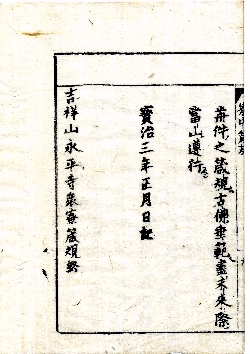 右件之箴規古佛垂範盡未來際
當山遵行
寶治三年正月日記
吉祥山永平寺衆寮箴規終